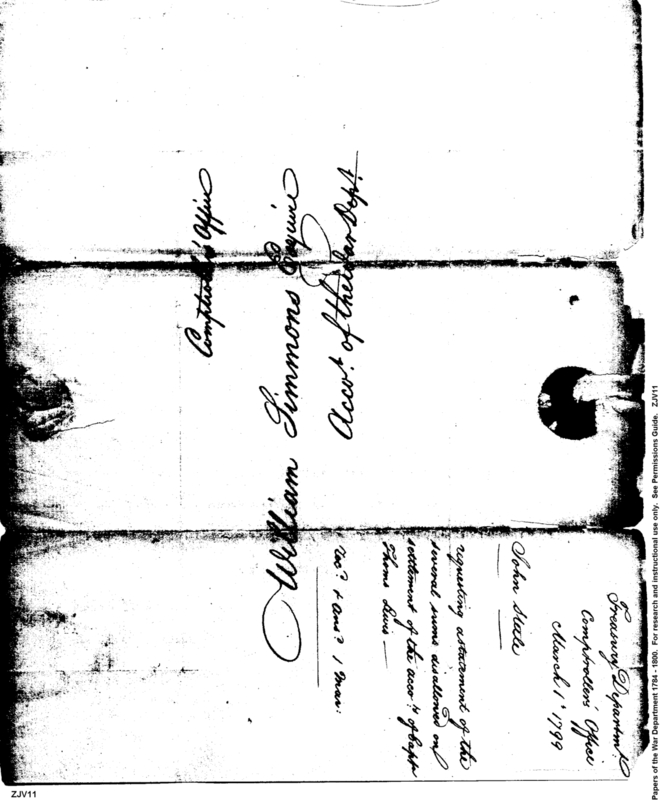 Comptrollers Office
William Simmons Esquire
Accot. of the War Dept.
Treasury Department
Comptrollers Office
March 1st 1799
John Steele
requesting a statement of the
several sums disallowed on
settlement of the accots. of Captn
Thoms Lewis
Recd. & Ansd. 1 Mar:
Papers of the War Department 1784 - 1800. For research and instructional use only. See Permissions Guide. ZJV11
ZJV11